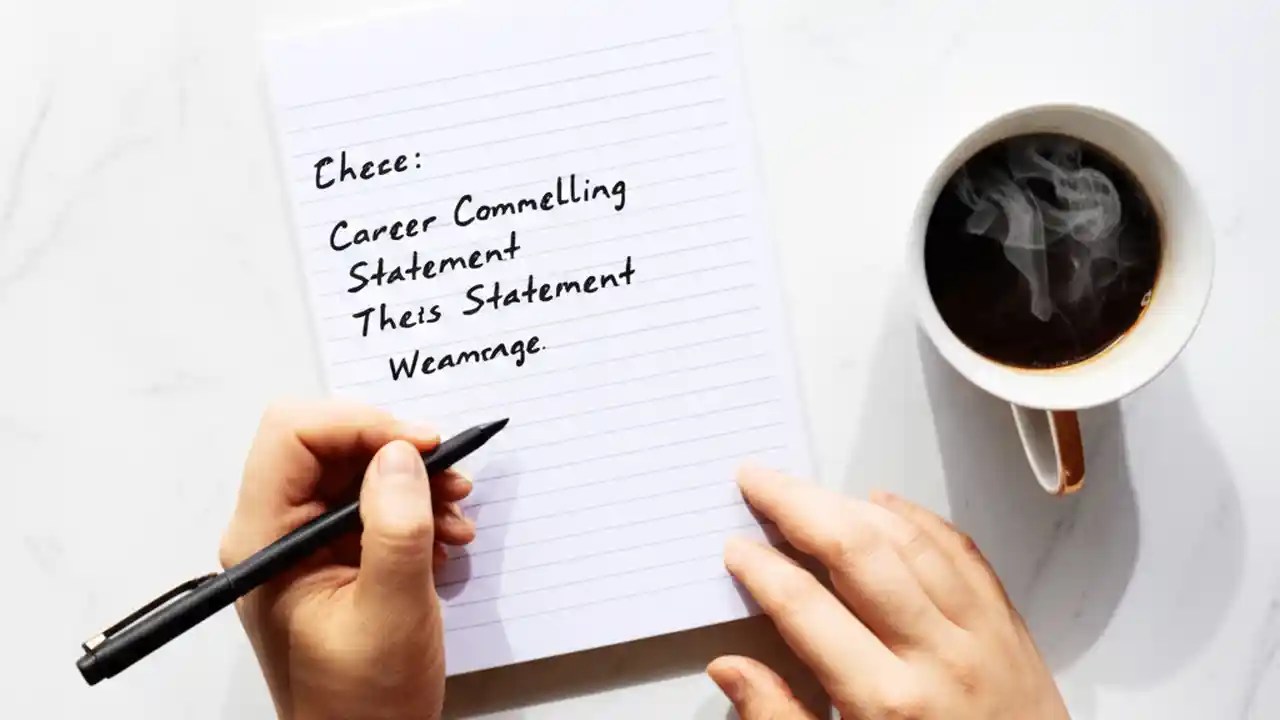 Chese:
Career Commelling
Statement
Thets Statement
Weamrage.